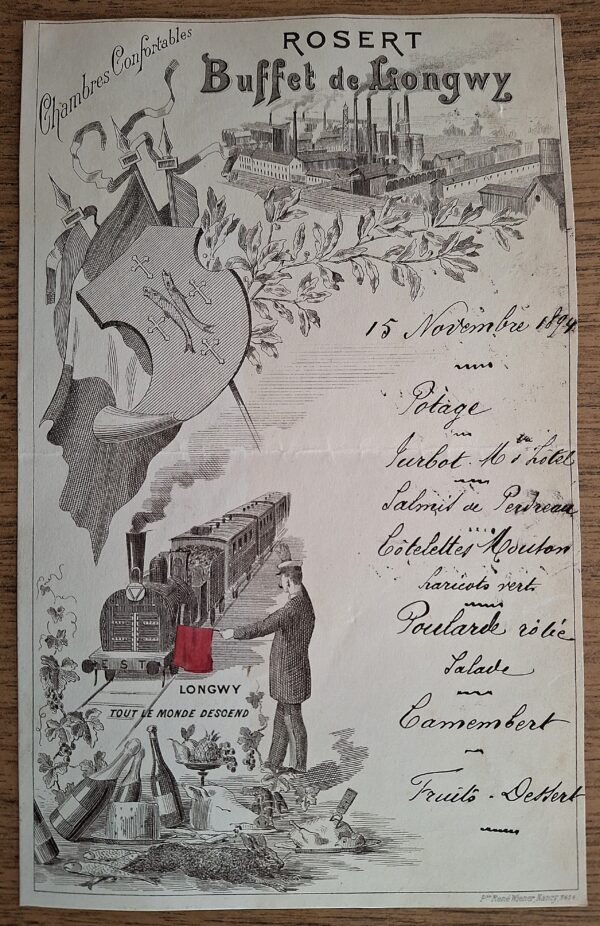 Chambres Confortables
ROSERT
Buffet de Longwy
15 Novembre 1894
Potage
Turbot. Me d'hôtel
Salmis de Perdreau
Côtelettes Mouton
haricots verts
Poularde rôtie
Salade
Camembert
Fruits - Dessert
EST
LONGWY
TOUT LE MONDE DESCEND
René Wiener, Nancy